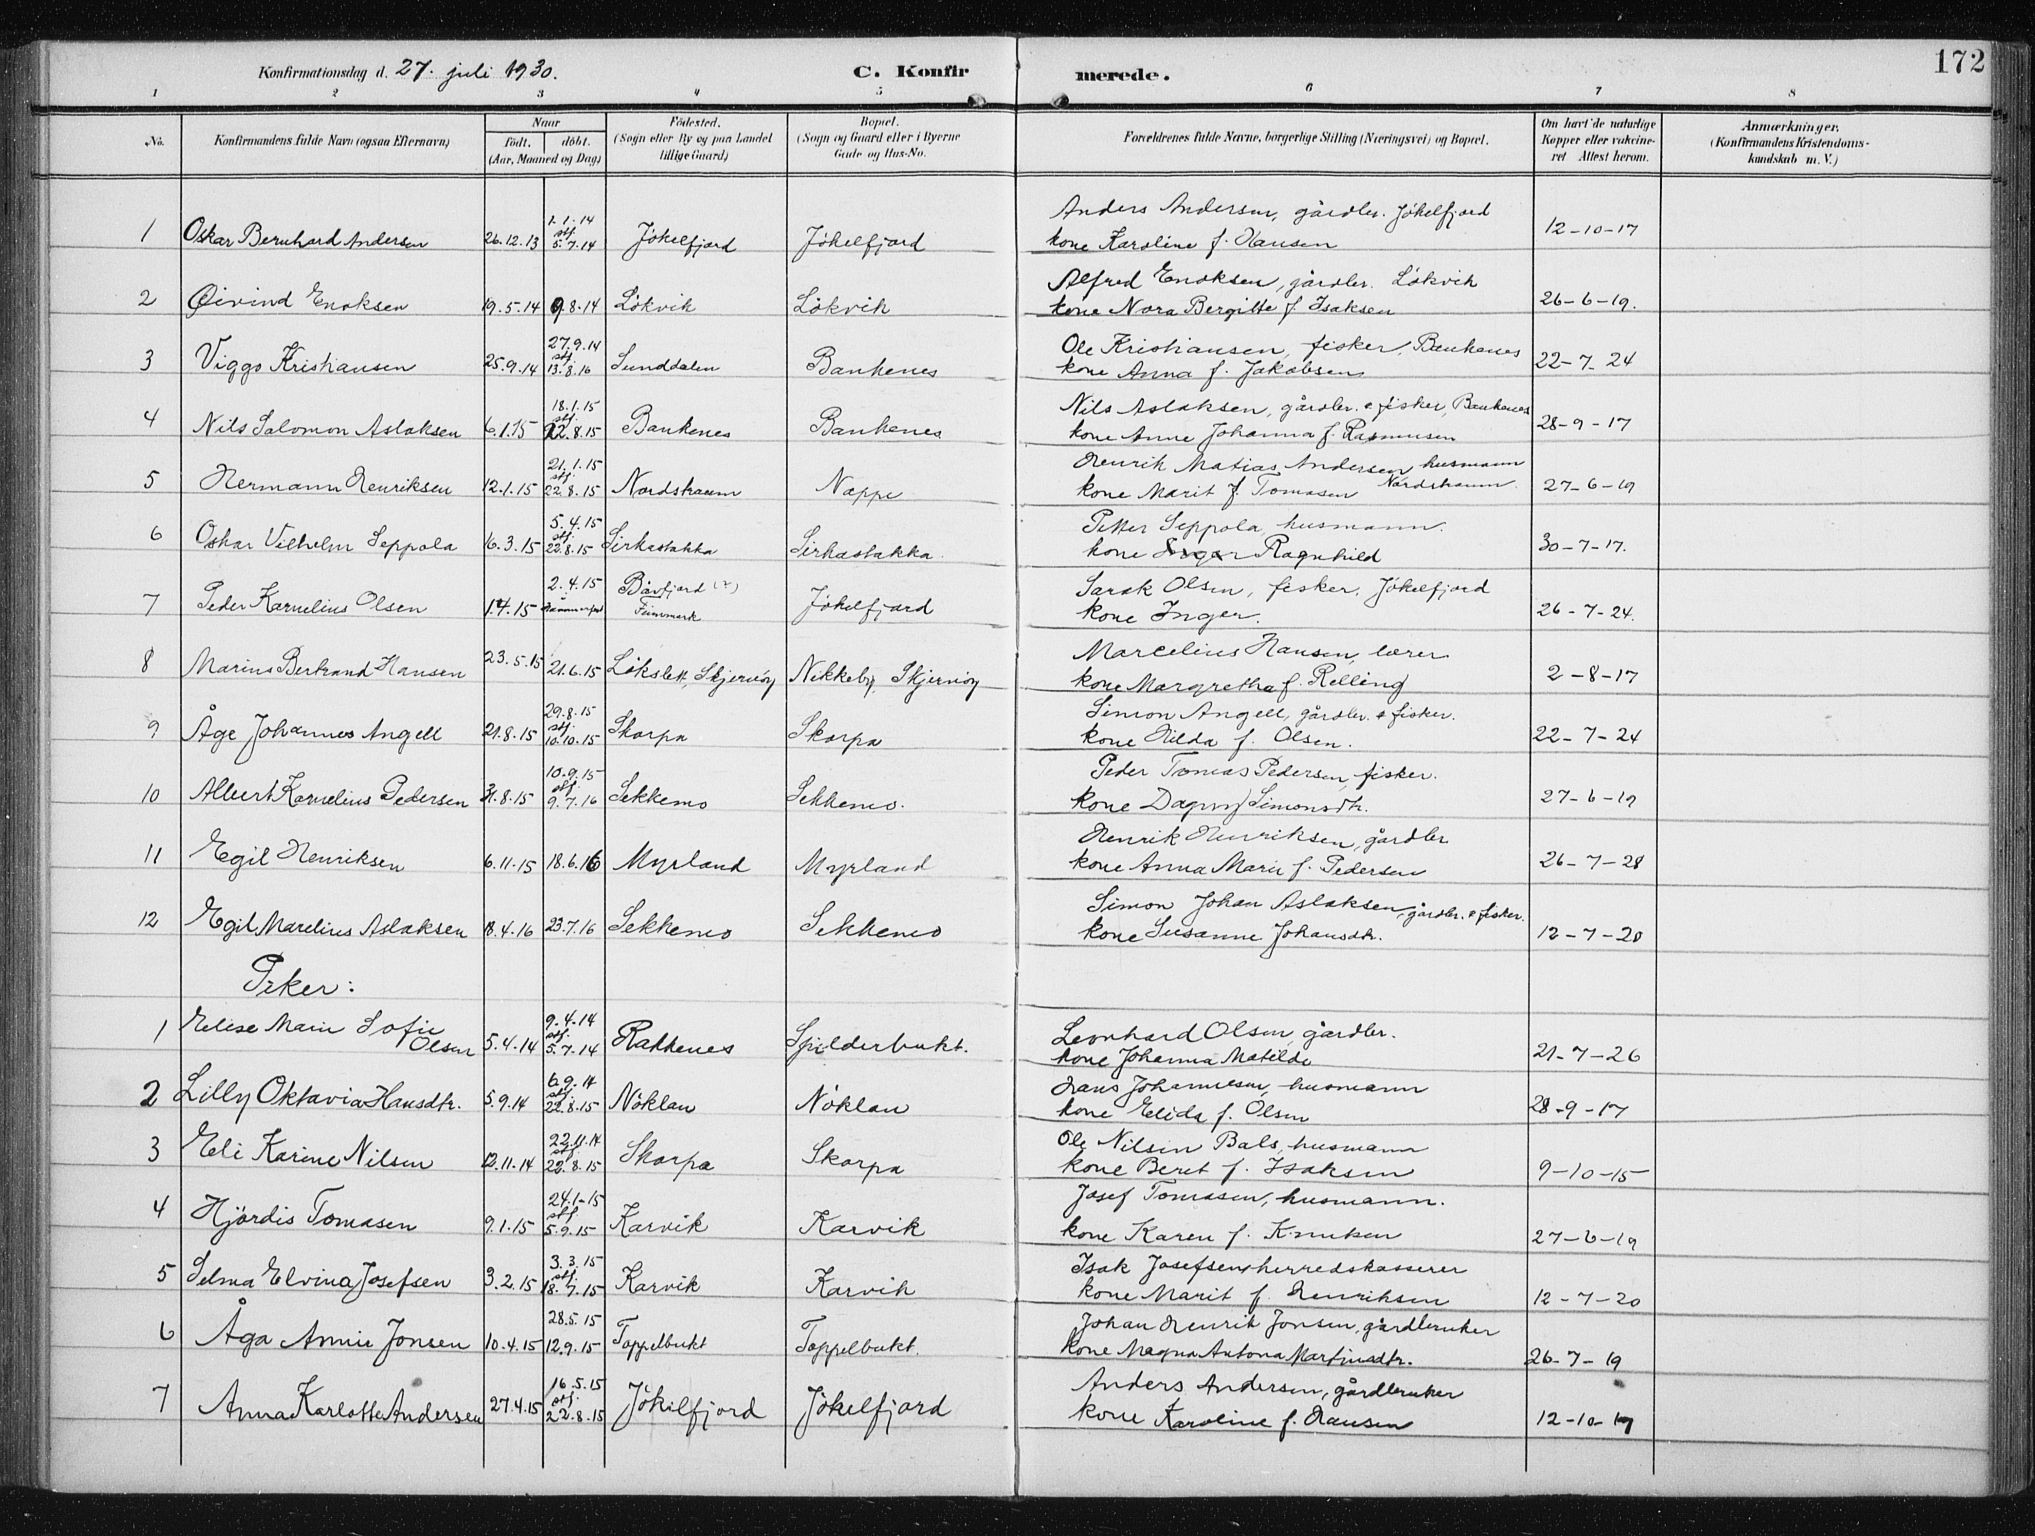 172
Konfirmationsdag d. 27. juli 1930. C. Konfirmerede.
1 2 3 4 5 6 7 8
No. Konfirmandens fulde Navn (ogsaa Efternavn) Naar født. døbt. (Aar, Maaned og Dag) Fødested. (Sogn eller By og paa Landet tillige Gaard) Bopæl. (Sogn og Gaard eller i Byerne Gade og Hus-No. Forældrenes fulde Navne, borgerlige Stilling (Næringsvei) og Bopæl. Om havt de naturlige Kopper eller vakcineret Attest herom. Anmærkninger. (Konfirmandens Kristendomskundskab m. V.)
1 Oskar Bernhard Andersen 26.12.13 1.1.14 stf. 5.7.14 Jökelfjord Jökelfjord Anders Andersen, gårdbr. Jökelfjord kone Karoline f. Hansen 12-10-17
2 Øivind Enoksen 19.5.14 9.8.14 Lökvik Lökvik Alfred Enoksen, gårdbr. Lökvik kone Nora Bergitte f. Isaksen 26-6-19.
3 Viggo Kristiansen 25.9.14 27.9.14 stf. 13.8.16 Sunddalen Bankenes Ole Kristiansen, fisker, Bankenes kone Anna f. Jakobsen 22-7-24
4 Nils Salomon Aslaksen 6.1.15 18.1.15 stf. 22.8.15 Bankenes Bankenes Nils Aslaksen, gårdbr. & fisker, Bankenes kone Anne Johanna f. Rasmusen 28-9-17
5 Hermann Henriksen 12.1.15 21.1.15 stf. 22.8.15 Nordstraum Nappe Henrik Matias Andersen husmann Nordstraum kone Marit f. Tomasen 27-6-19
6 Oskar Vilhelm Seppola 16.3.15 5.4.15 stf. 22.8.15 Sirkastakka Sirkastakka. Petter Seppola husmann. kone Inger Ragnhild 30-7-17.
7 Peder Karnelius Olsen 1.4.15 2.4.15 Hammerfest Båvfjord (?) Finnmark Jökelfjord Sarak Olsen, fisker, Jökelfjord kone Inger. 26-7-24.
8 Marius Bertrand Hansen 23.5.15 21.6.15 Lökslett, Skjervöy Nikkeby, Skjervöy Marcelius Hansen, lærer kone Margretha f. Relling 2-8-17
9 Åge Johannes Angell 21.8.15 29.8.15 stf. 10.10.15 Skorpa Skorpa Simon Angell, gårdbr. & fisker. kone Hilda f. Olsen. 22-7-24
10 Albert Karnelius Pedersen 31.8.15 10.9.15 stf. 9.7.16 Sekkemo Sekkemo. Peder Tomas Pedersen, fisker. kone Dagny Simonsdtr. 27-6-19
11 Egil Henriksen 6.11.15 18.6.16 Myrland Myrland Henrik Henriksen, gårdbr kone Anna Marie f. Pedersen 26-7-28
12 Egil Marelius Aslaksen 18.4.16 23.7.16 Sekkemo Sekkemo Simon Johan Aslaksen, gårdbr. & fisker. kone Susanne Johansdtr. 12-7-20
Piker:
1 Elise Marie Sofie Olsen 5.4.14 9.4.14 stf. 5.7.14 Rakkenes Spilderbukt. Leonhard Olsen, gårdbr. kone Johanna Matilde 21-7-26
2 Lilly Oktavia Hansdtr. 5.9.14 6.9.14 stf. 22.8.15 Nöklan Nöklan Hans Johannesen, husmann kone Elida f. Olsen 28-9-17
3 Eli Karine Nilsen 12.11.14 22.11.14 stf. 22.8.15 Skorpa Skorpa Ole Nilsen Bals, husmann kone Beret f. Isaksen 9-10-15
4 Hjördis Tomasen 9.1.15 24.1-15 stf. 5.9.15 Karvik Karvik Josef Tomasen, husmann. kone Karen f. Knutsen 27-6-19
5 Selma Elvina Josefsen 3.2.15 3.3.15 stf. 18.7.15 Karvik Karvik Isak Josefsen, herredskasserer kone Marit f. Henriksen 12-7-20
6 Åga Annie Jonsen 10.4.15 28.5.15 12.9.15 Toppelbukt Toppelbukt. Johan Henrik Jonsen, gårdbruker kone Magna Antona Martinsdtr. 26-7-19
7 Anna Karlotte Andersen 27.4.15 16.5.15 stf. 22.8.15 Jökelfjord Jökelfjord Anders Andersen, gårdbruker kone Karoline f. Hansen 12-10-17